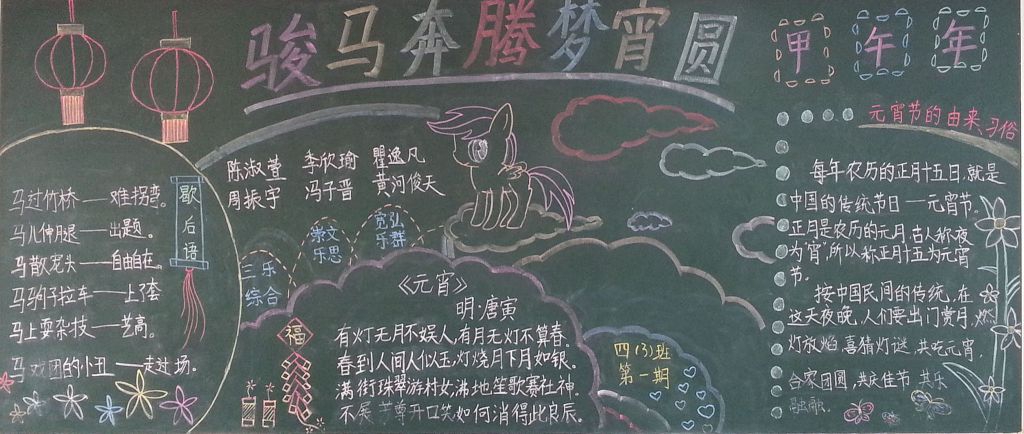 骏马奔腾梦宵圆
甲午年
马过竹桥——难拐弯。
马儿伸腿——出题。
马散笼头——自由自在。
马驹子拉车——上了套
马上耍杂技——艺高。
马戏团的小丑——走过场。
歇后语
陈淑萱 李欣瑜 瞿逸凡
周振宇 冯子晋 黄河俊天
三乐
综合
崇文
乐思
宽弘
乐群
福
《元宵》
明·唐寅
有灯无月不娱人,有月无灯不算春。
春到人间人似玉,灯烧月下月如银。
满街珠翠游村女,沸地笙歌赛社神。
不展芳尊开口笑,如何消得此良辰。
四(3)班
第一期
元宵节的由来、习俗
每年农历的正月十五日,就是
中国的传统节日—元宵节。
正月是农历的元月,古人称夜
为"宵",所以称正月十五为元宵
节。
按中国民间的传统,在
这天夜晚,人们要出门赏月、燃
灯放焰、喜猜灯谜、共吃元宵,
合家团圆、共庆佳节 其乐
融融。